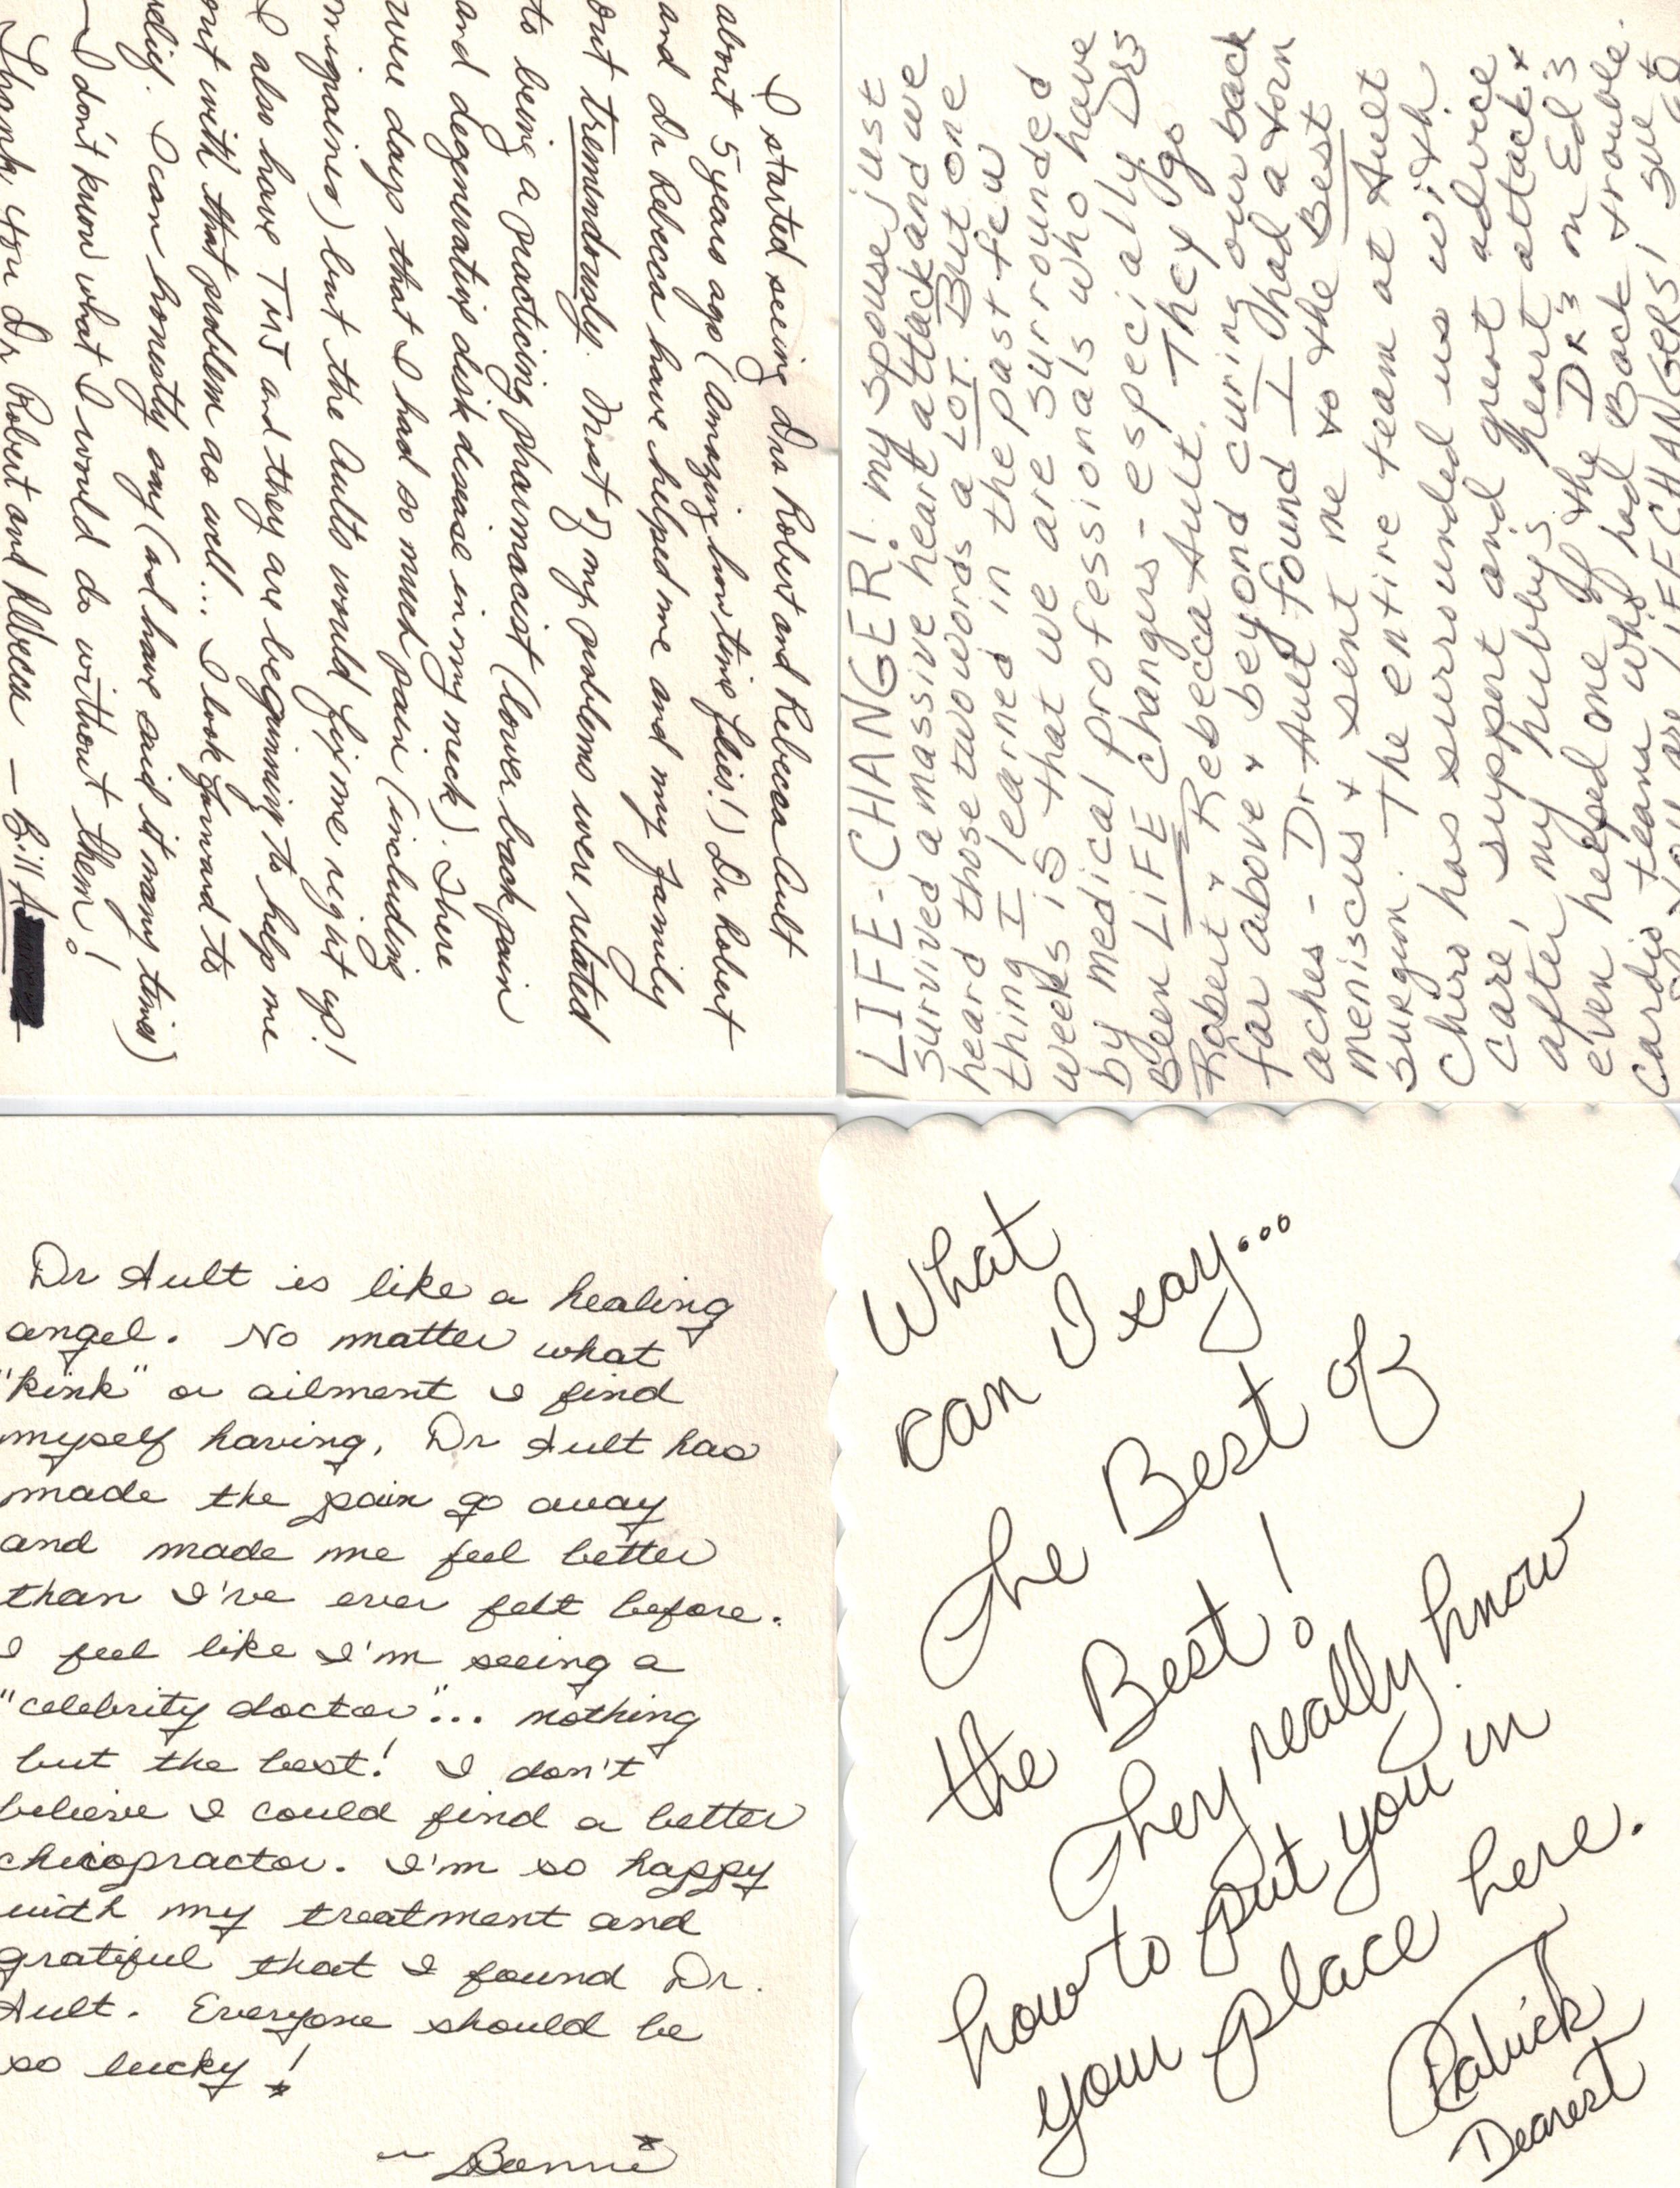 I started seeing Drs Robert and Rebecca Ault
about 5 years ago (Amazing how time flies!) Dr Robert
and Dr Rebecca have helped me and my family
out tremundously. Most of my problems were related
to being a practicing pharmacist (lower back pain
and degenerative disk disease in my neck). There
were days that I had so much pain (including
migraines) but the Aults would fix me right up!
I also have TMJ and they are beginning to help me
out with that problem as well... I look forward to
relief. I can honestly say (and have said it many times)
I don't know what I would do without them!
Thank you Dr Robert and Rebecca — Bill A
LIFE-CHANGER! my spouse just
survived a massive heart attack and we
heard those two words a LOT. But one
thing I learned in the past few
weeks is that we are surrounded
by medical professionals who have
Been LiFE changers - especially Drs
Robert & Rebecca Ault. They go
far above & beyond curing our back
aches - Dr Ault found I had a torn
meniscus & sent me to the Best
surgeon. The entire team at Ault
Chiro has surrounded us with
care, support and great advice
after my hubby's heart attack &
even helped one of the Dr's on Ed's
cardio team who had Back trouble.
LIFECHANGERS!
Dr Ault is like a healing
angel. No matter what
"kink" or ailment I find
myself having, Dr Ault has
made the pain go away
and made me feel better
than I've ever felt before.
I feel like I'm seeing a
"celebrity doctor"... nothing
but the best! I don't
believe I could find a better
chiropractor. I'm so happy
with my treatment and
grateful that I found Dr.
Ault. Everyone should be
so lucky!
~ Bonnie
What
can I say...
The Best of
the Best!
They really know
how to put you in
your place here.
Patrick
Dearest